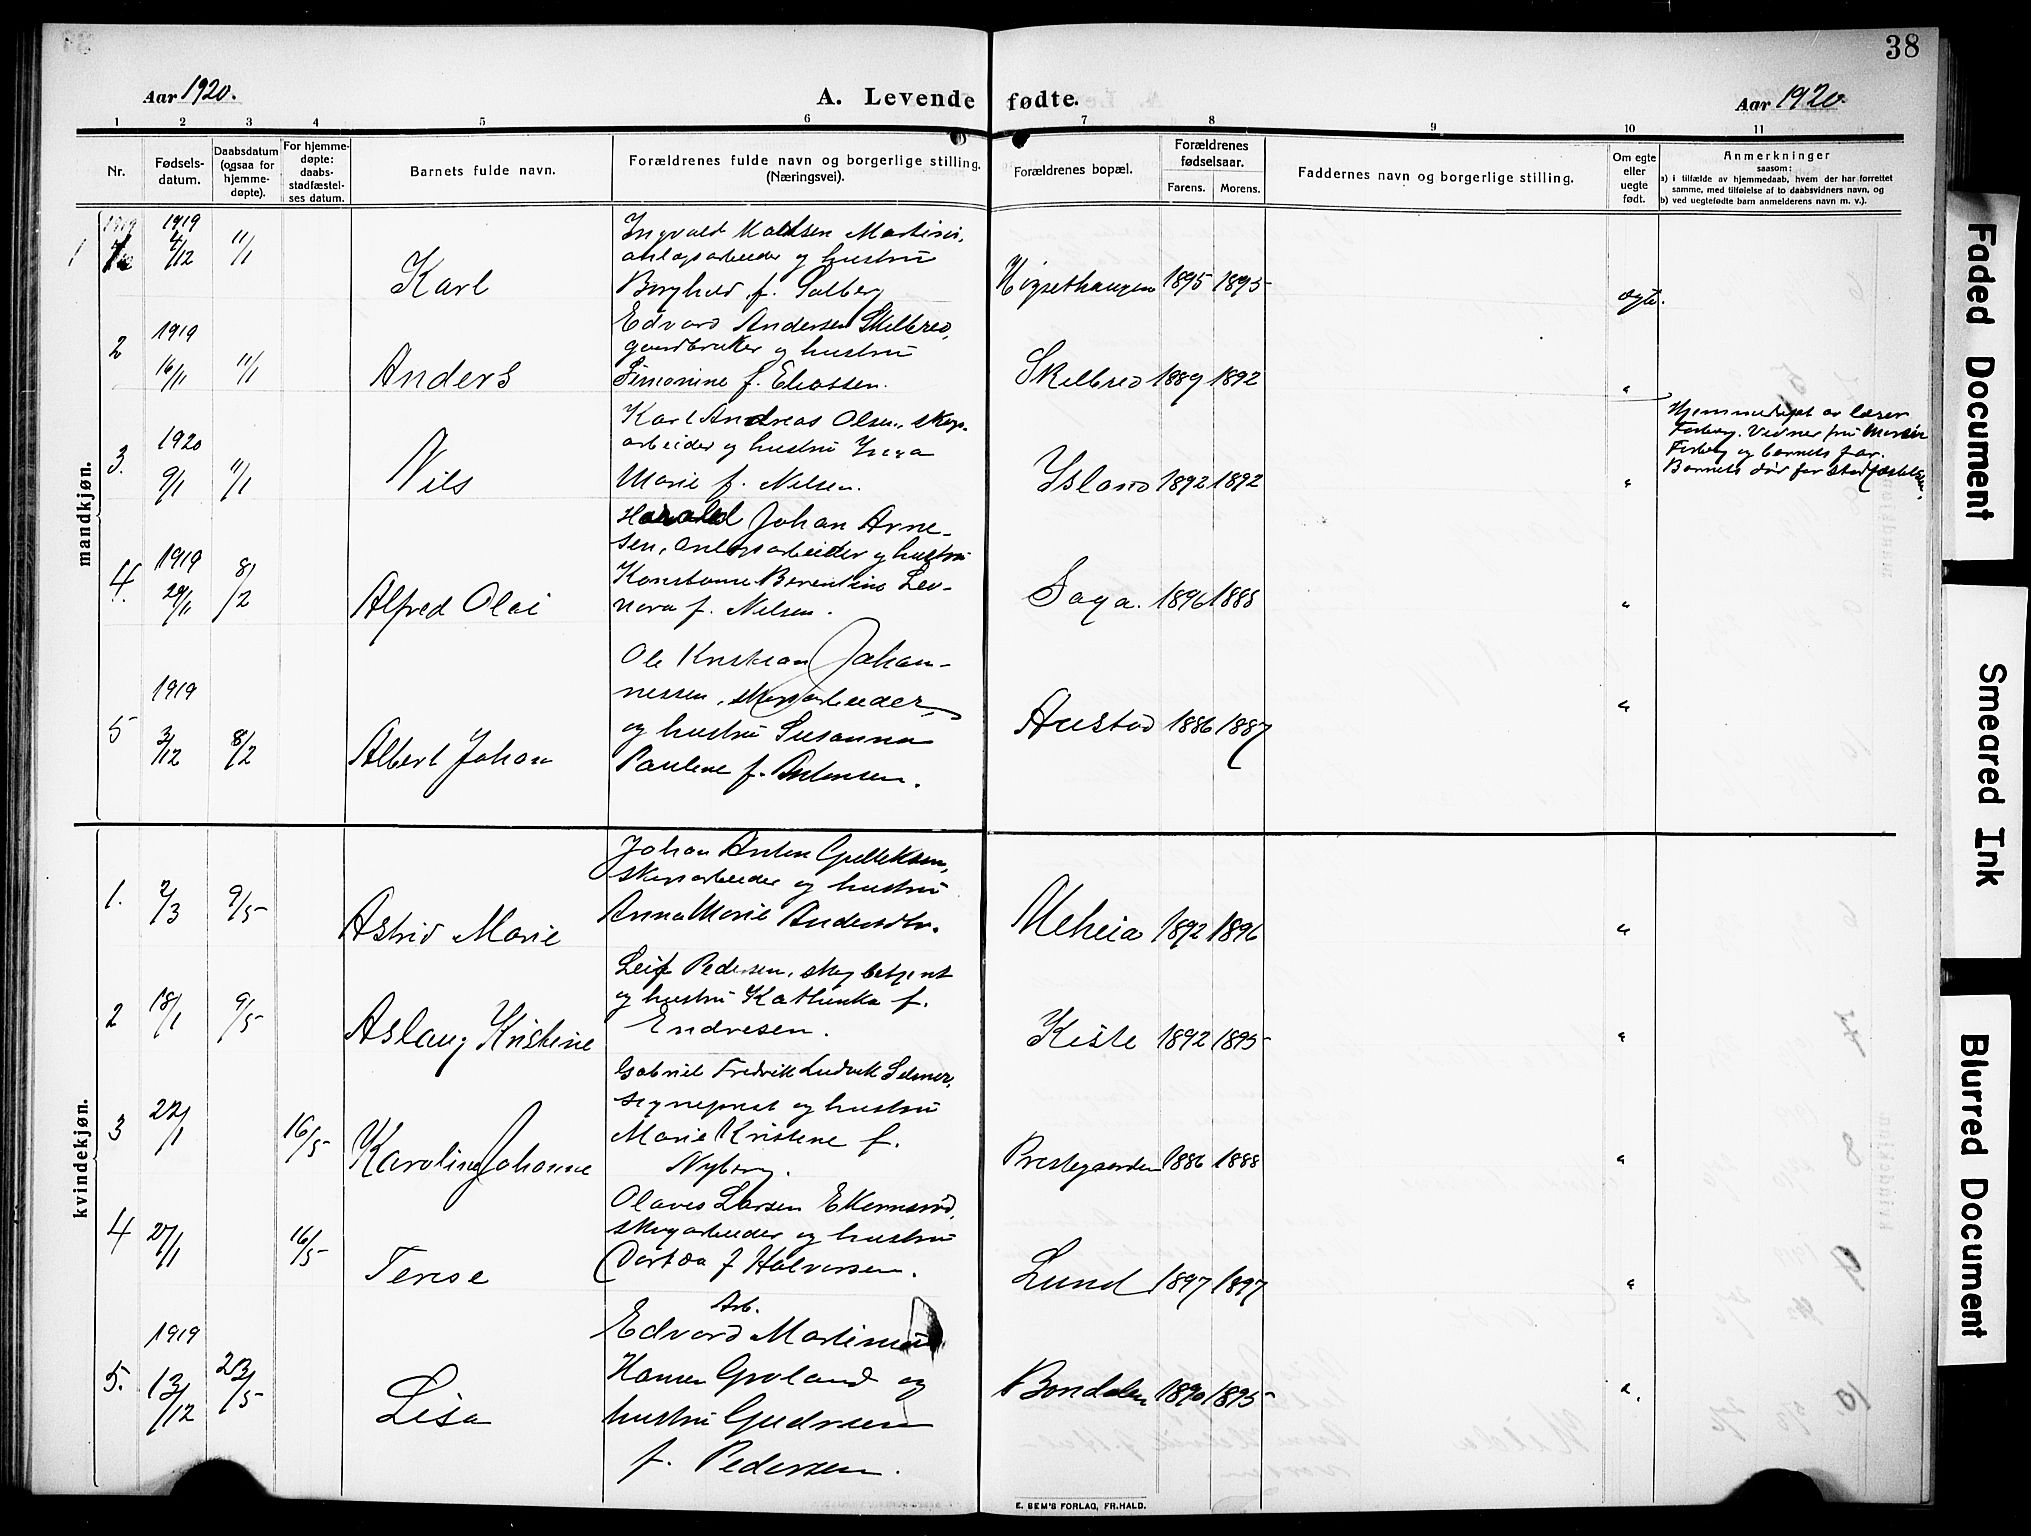 38
Aar 1920.
A. Levende fødte.
Aar 1920.
1 2 3 4 5 6 7 8 9 10 11
Nr.
Fødsels-
datum.
Daabsdatum
(ogsaa for
hjemme-
døpte).
For hjemme-
døpte:
daabs-
stadfæstel-
ses datum.
Barnets fulde navn.
Forældrenes fulde navn og borgerlige stilling.
(Næringsvei).
Forældrenes bopæl.
Forældrenes
fødselsaar.
Farens. Morens.
Faddernes navn og borgerlige stilling.
Om egte
eller
uegte
født.
Anmerkninger
saasom:
a) i tilfælde av hjemmedaab, hvem der har forrettet
samme, med tilføielse af to daabsvidners navn, og
b) ved uegtefødte barn anmelderens navn m. v.).
mandkjøn.
1
1919
4/12
11/1
Karl
Ingvald Martinsen
anlægsarbeider og hustru
Borghild f. Solberg
Høgsethaugen 1895 1895
egte.
2
1919
16/11
11/1
Anders
Edvard Andersen Skelbred,
gaardbruker og hustru
Simonine f. Eliassen.
Skelbred 1889 1892
"
3.
1920
9/1
11/1
Nils
Karl Andreas Olsen, skogs-
arbeider og hustru Inga
Marie f. Nilsen.
Island 1892 1892
"
Hjemmedøpt av lærer
Forberg. Vidner fru
Forberg og barnets far.
Barnet dør før stadfæstelsen.
4.
1919
29/11
8/2
Alfred Olai
Harald Johan Arne-
sen, anlægsarbeider og hustru
Konstanse Berentine Leo-
nora f. Nelsen.
Saga. 1896 1888
"
5
1919
3/12
8/2
Albert Johan
Ole Kristian Johan-
nessen, skogsarbeider,
og hustru Susanna
Pauline f. Antonsen.
Austad 1886 1887
"
kvindekjøn.
1.
2/3
9/5
Astrid Marie
Johan Anton Gulliksen,
skogsarbeider og hustru
Anna Marie Andersdtr.
Meheia 1892 1896
"
2
18/1
9/5
Aslaug Kristine
Leif Pedersen, skogbetjent
og hustru Kathinka f.
Endresen.
Kiste 1892 1895
"
3
22/1
16/5
Karoline Johanne
Gabriel Fredrik Ludvik Selmer,
sogneprest og hustru
Marie Kristine f.
Nyberg.
Prestegaarden 1886 1888
"
4
27/1
16/5
Terese
Olaves Larsen Ekernsrød,
skogarbeider og hustru
Dortea f Halvorsen.
Lund 1897 1897
"
5.
1919
13/12
23/5
Lisa
Arb.
Edvard Martinius
Hansen Groland og
hustru Gudrun
f. Pedersen.
Bondalen 1890 1895
"
E. SEM'S FORLAG, FR.HALD.
Faded Document
Smeared Ink
Blurred Document